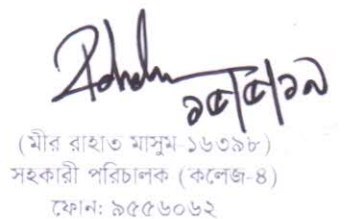 ১৫/৫/১৯
(মীর রাহাত মাসুম-১৬৩৯৮)
সহকারী পরিচালক (কলেজ-৪)
ফোন: ৯৫৫৬০৬২